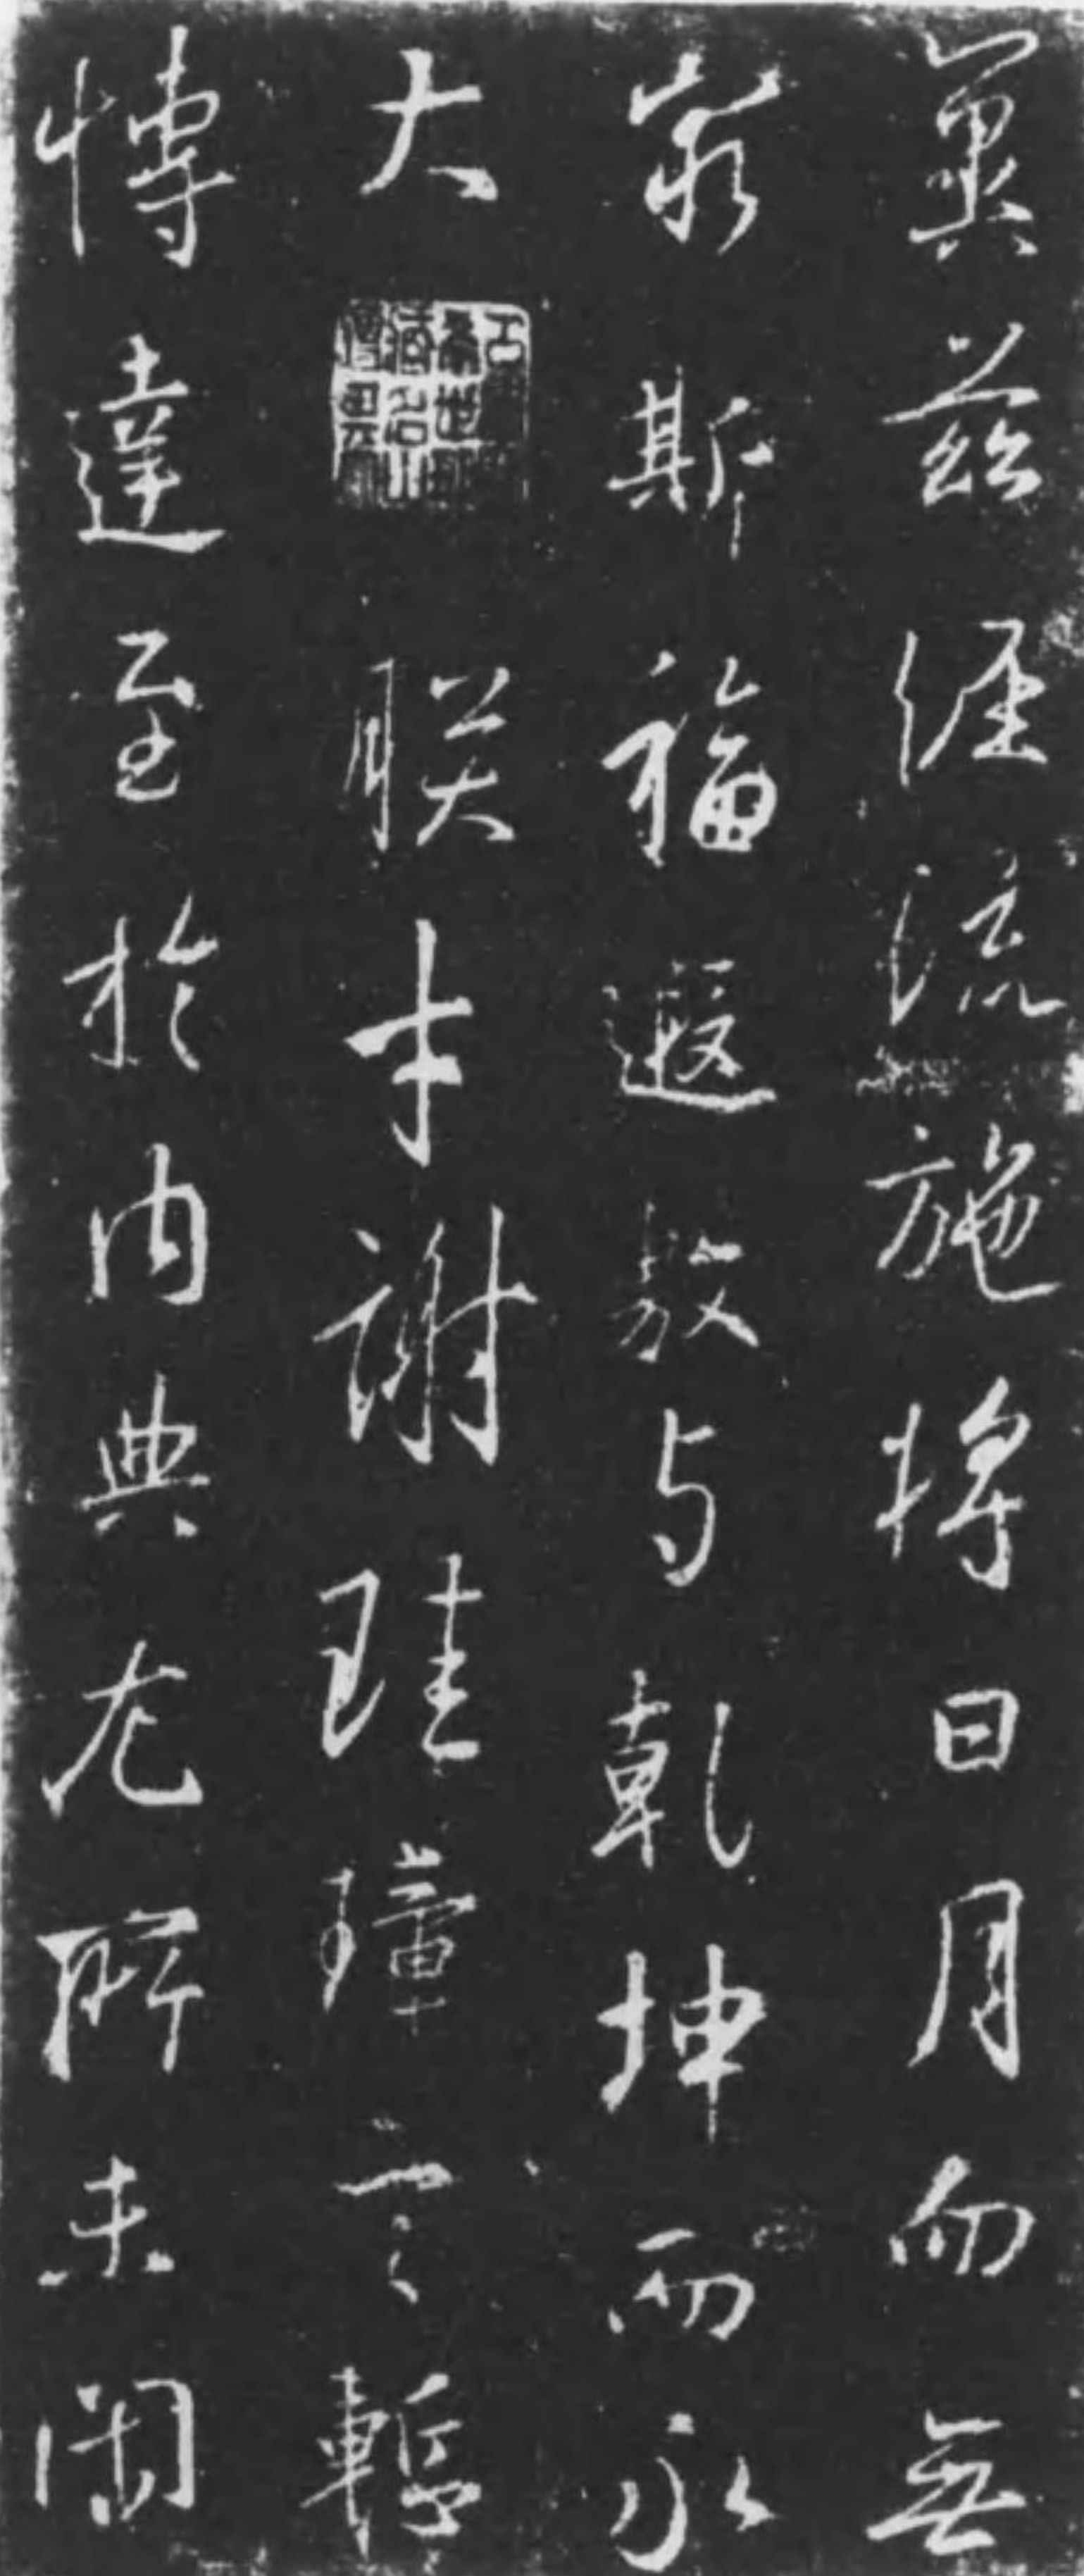 冀兹经流施将日月而無
窮斯福遐敷与乾坤而永
大
朕才謝珪璋言
博達至於内典尤所未閑